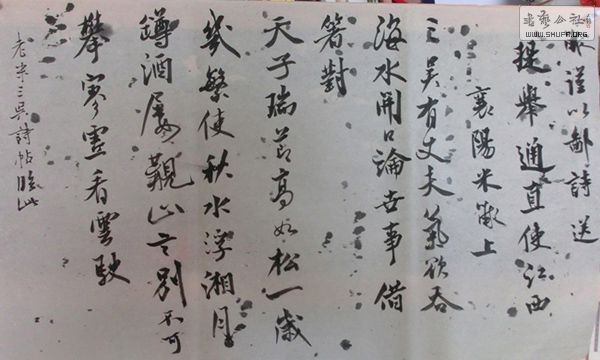 黻謹以鄙詩送
提舉通直使江西
襄陽米黻上
三吳有丈夫氣欲吞
海水開口論世事借
箸對
天子瑞節高如松一歲
幾繁使秋水浮湘月
罇酒屢觀止言別不可
攀寥虛看雲駛
老米三吳詩帖臨此
書藝公社
WWW.SHUFA.ORG